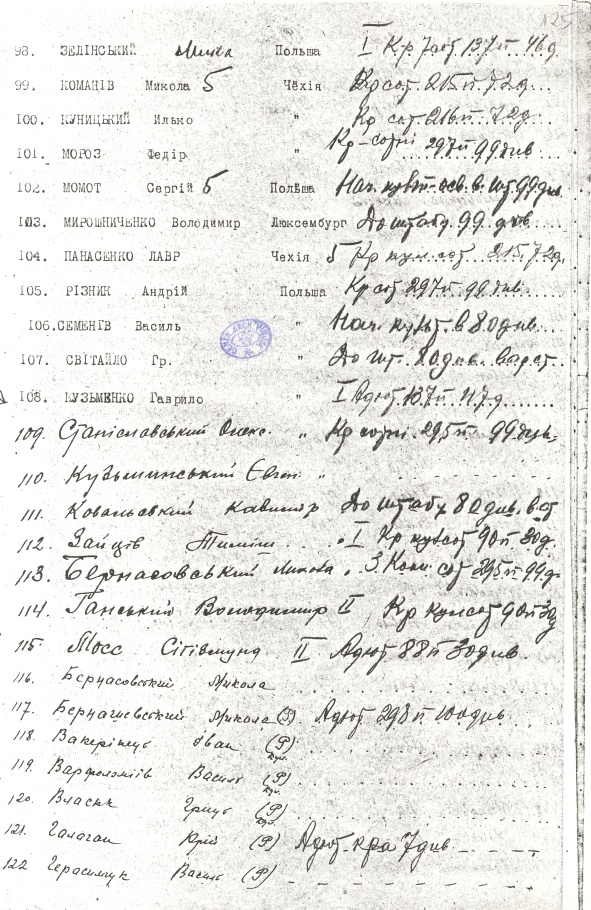 125
98. ЗЕЛІНСЬКИЙ Мика Польща I Кр 7 сот 137 п 4б д
99. КОМАНІВ Микола Б Чехія Кр сот 215 п 72 д
100. КУНИЦЬКИЙ Илько " Кр сот 216 п 72 д
101. МОРОЗ Федір " Кр-сотні 297 п 99 див
102. МОМОТ Сергій Б Полєша Нач. культ-осв. в. шт 99 див
103. МИРОШНИЧЕНКО Володимир Люксембург До штабу 99 див
104. ПАНАСЕНКО ЛАВР Чехія Б Кр кул сот 215. 72 д.
105. РІЗНИК Андрій Польша Кр сот 297 п 99 див.
106. СЕМЕНІВ Василь " Нач. культ. в 80 див.
107. СВІТАЙЛО Гр. " До шт. 80 див.
108. КУЗЬМЕНКО Гаврило " I Адют 137 п 47 д
109. Станіславський Олекс. " Кр сотні 295 п 99 див.
110. Кузьминський Євген "
111. Ковальський Казимир До штабу 80 див. в. от
112. Зайців Тиміш " I Кр кулсот 90 п 30 д.
113. Бернасовський Микола . 3. Ком. сот 295 п 99 д
114. Ганський Володимир II Кр кулсот 90 п 30 д
115 Мосс Сігізмунд II Адют 88 п 30 див.
116. Бернасовський Микола
117. Бернацевський Микола (Р) Адют 298 п 100 див
118. Вакерінець Іван (Р) Кул.
119. Варфоломіїв Василь (Р) Кул.
120. Власик Гриць (Р) Кул.
121. Галаган Юрій (Р) Адют кра 7 див
122 Герасимчук Василь (Р)